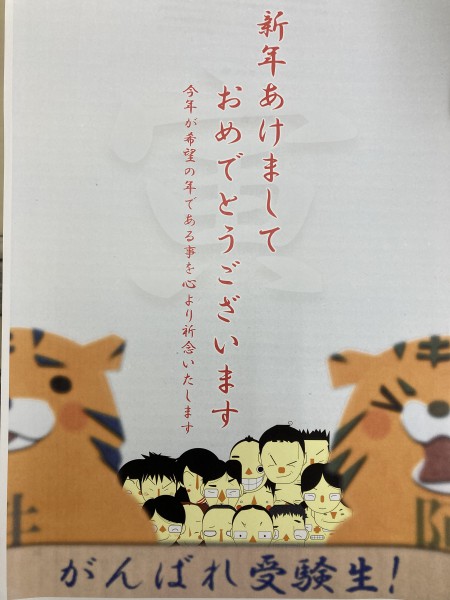 新年あけまして
おめでとうございます
今年が希望の年である事を心より祈念いたします
寅
がんばれ受験生!